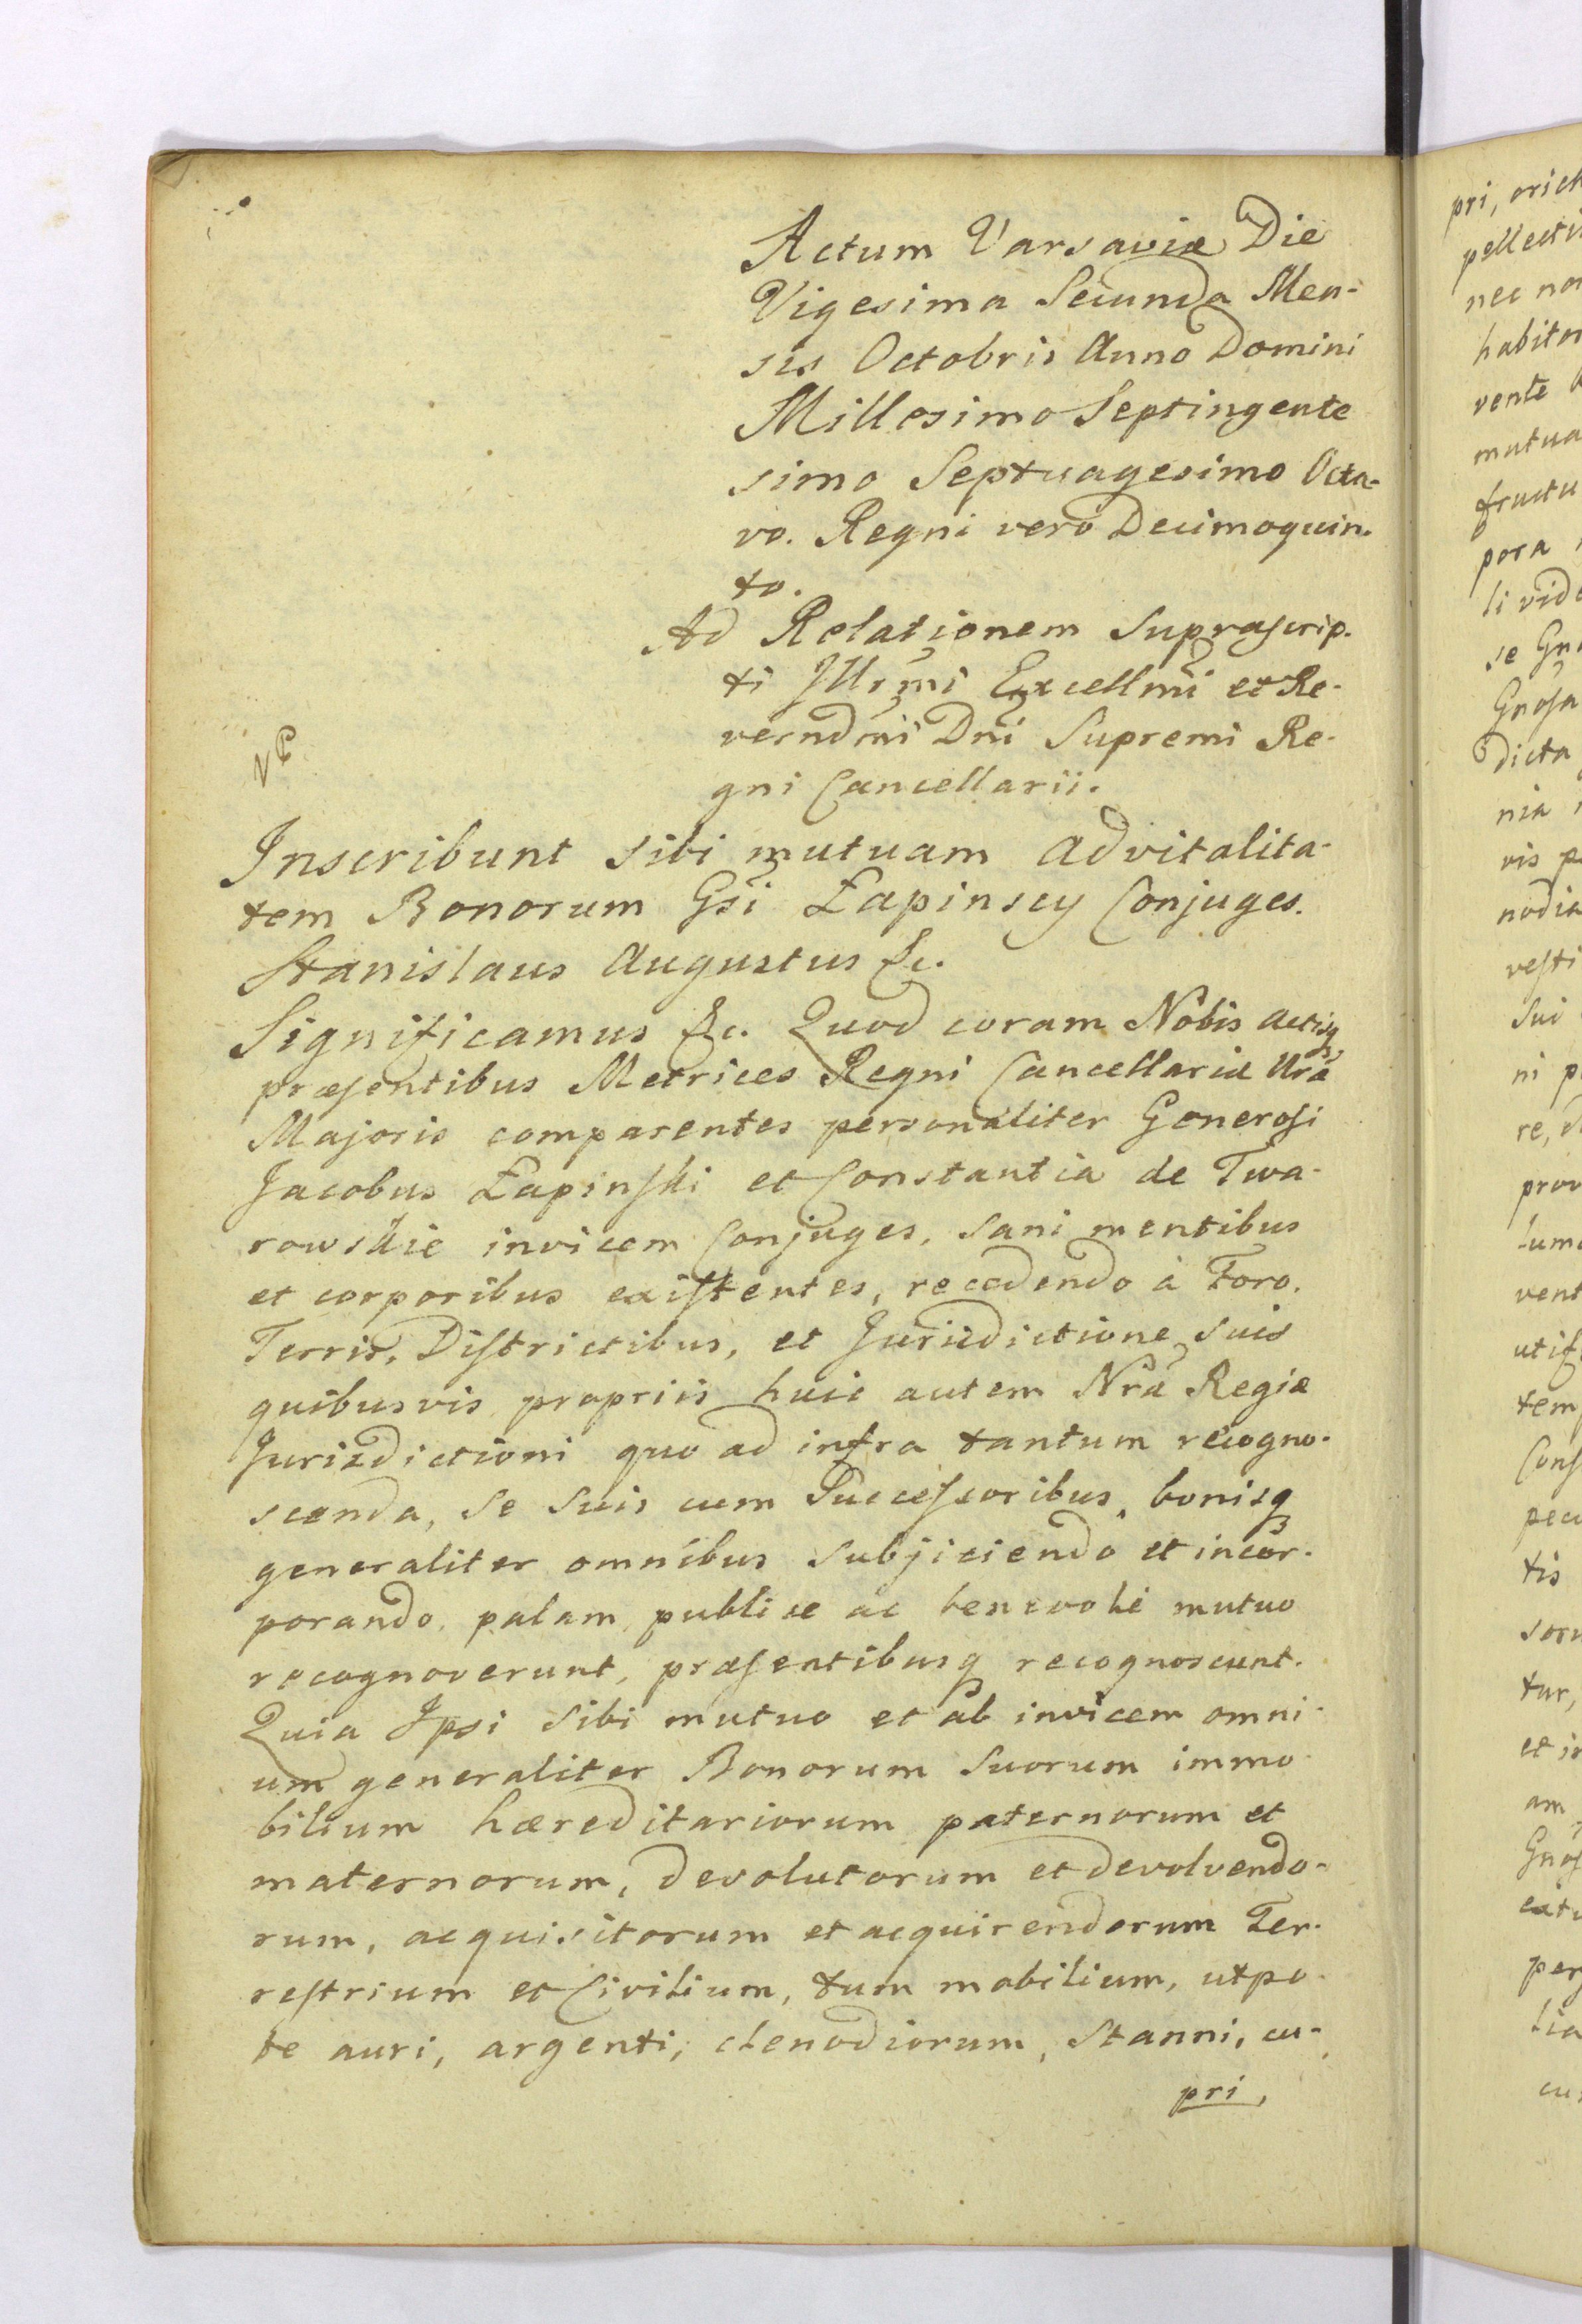 Actum Varsaviæ Die
Vigesima Secunda Men-
sis Octobris Anno Domini
Millesimo Septingente
simo Septuagesimo Octa-
vo. Regni vero Decimoquin-
to.
Ad Relationem Suprascrip-
ti Illr̃mi Excellm̃i et Re-
verndm̃i Dñi Supremi Re-
gni Cancellarii.
Inscribunt sibi mutuam advitalita-
tem Bonorum Gsi Łapinscy Conjuges.
Stanislaus Augustus &c.
Significamus &c. Quod coram Nobis actisq
præsentibus Metrices Regni Cancellariæ Nræ
Majoris comparentes personaliter Generosi
Jacobus Łapinski et Constantia de Twa-
rowskie invicem Conjuges, sani mentibus
et corporibus existentes, recedendo à Foro.
Terris, Districtibus, et Jurisdictione suis
quibusvis propriis huic autem Nræ Regiæ
Jurisdictioni quo ad infra tantum recogno-
scenda, se suis cum Successoribus, bonisq
generaliter omnibus subjiciendo et incor-
porando, palam, publice ac benevole mutuo
recognoverunt, præsentibusq recognoscunt.
Quia Ipsi sibi mutuo et ab invicem omni-
um generaliter Bonorum suorum immo-
bilium hæreditariorum paternorum et
maternorum, devolutorum et devolvendo-
rum, acquisitorum et acquirendorum Ter-
restrium et Civilium, tum mobilium, utpo-
te auri, argenti, clenodiorum, Stanni, cu-
pri,
pri,
nec
habita
vente
mutua
fructu
pora
li
se
Gnosa
dicta
nia
vis
nodia
vesti
sui
ni
re,
vent
tem
tis
tur,
am